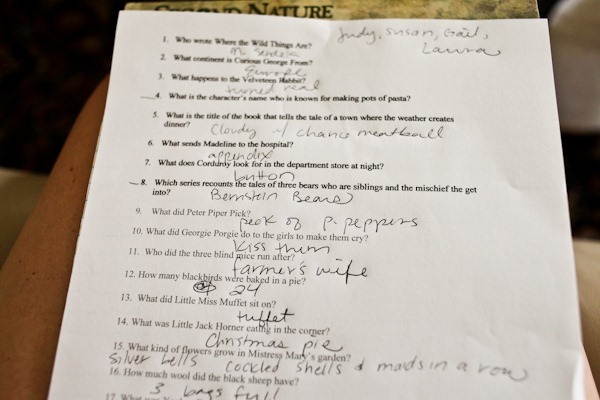 SECOND NATURE
Judy, Susan, Gail,
Laura
1. Who wrote Where the Wild Things Are?
M. Sendak
2. What continent is Curious George From?
Europe
3. What happens to the Velveteen Rabbit?
turned real
4. What is the character's name who is known for making pots of pasta?
5. What is the title of the book that tells the tale of a town where the weather creates
dinner?
Cloudy w/ chance meatball
6. What sends Madeline to the hospital?
appendix
7. What does Corduroy look for in the department store at night?
button
8. Which series recounts the tales of three bears who are siblings and the mischief the get
into?
Bernstein Bears
9. What did Peter Piper Pick?
peck of p. peppers
10. What did Georgie Porgie do to the girls to make them cry?
Kiss them
11. Who did the three blind mice run after?
farmer's wife
12. How many blackbirds were baked in a pie?
24
13. What did Little Miss Muffet sit on?
tuffet
14. What was Little Jack Horner eating in the corner?
Christmas pie
15. What kind of flowers grow in Mistress Mary's garden?
silver bells cockled shells & maids in a row
16. How much wool did the black sheep have?
3 bags full
17. What